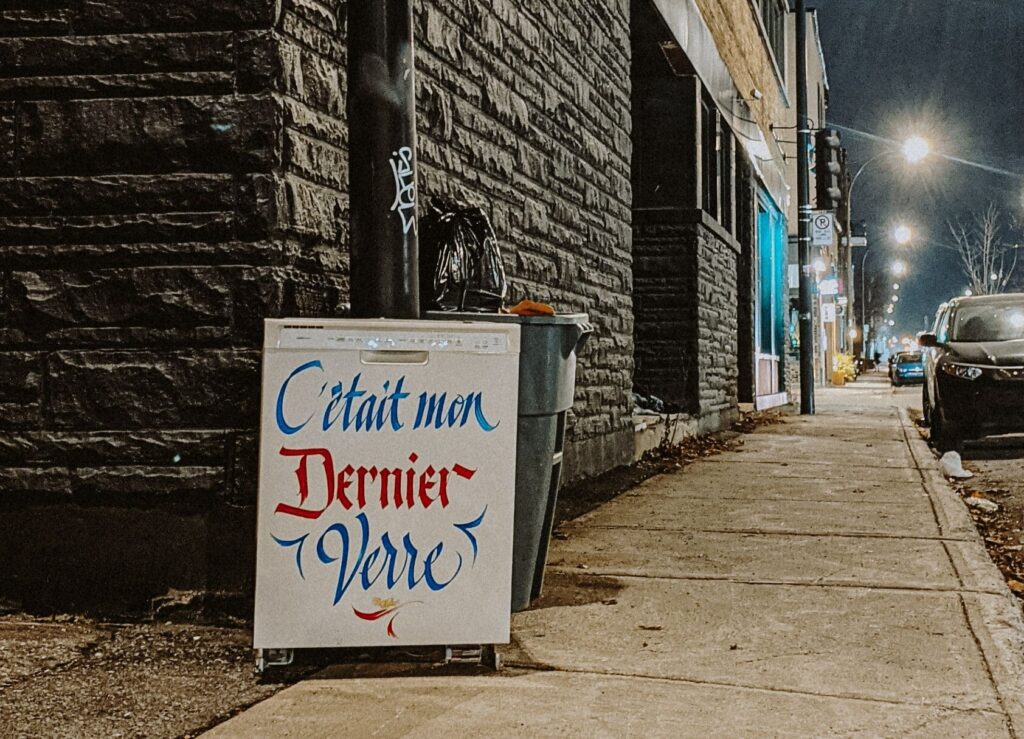 C'était mon
Dernier
Verre